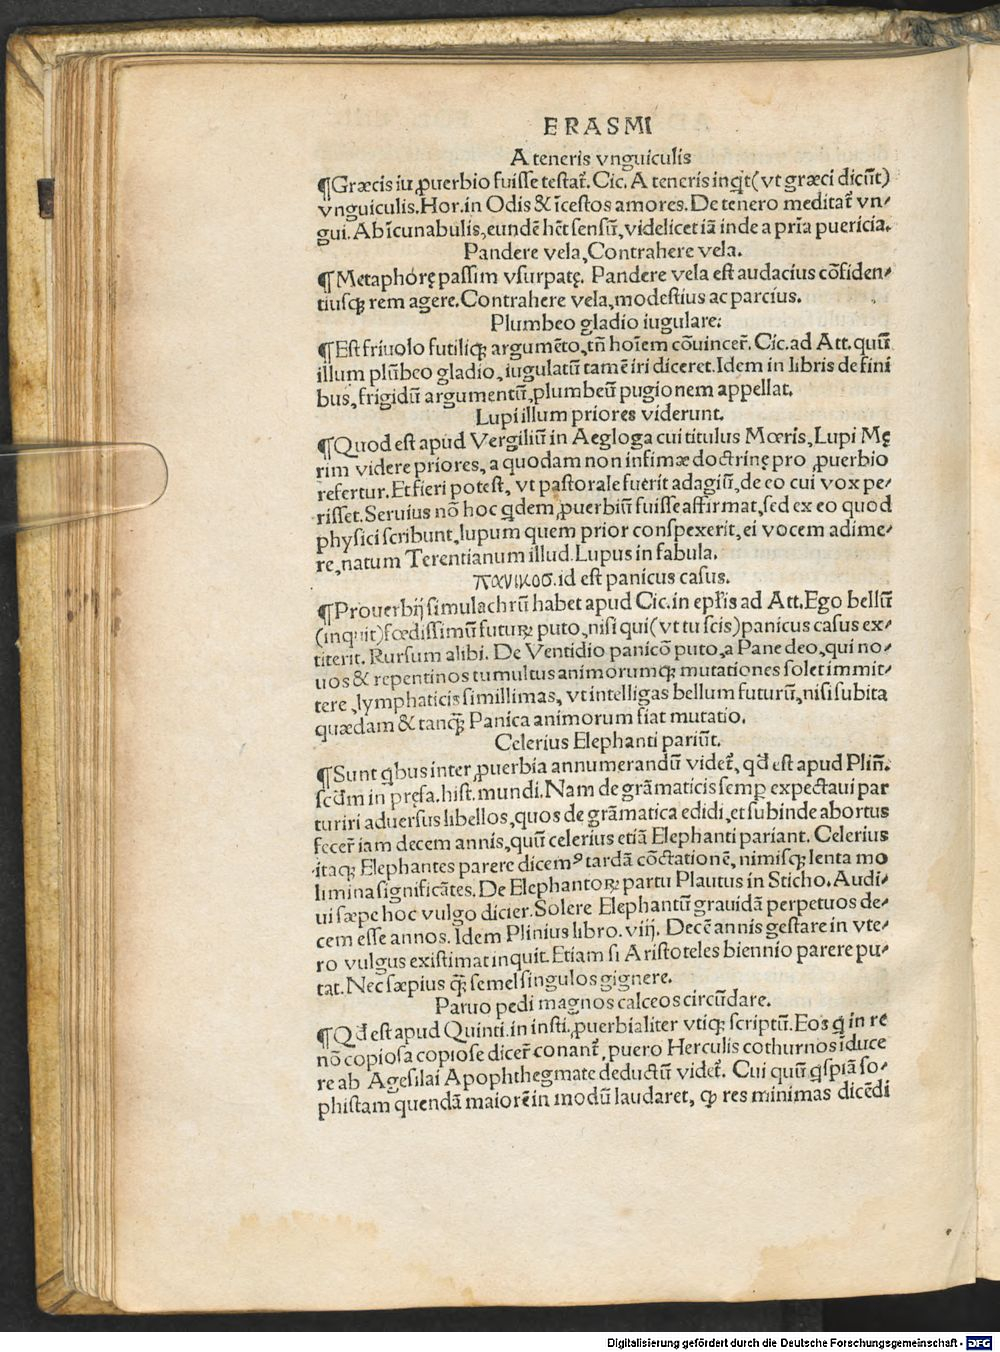 ERASMI
A teneris vnguiculis
¶Græcis iu ꝓuerbio fuiſſe teſtat̃. Cic. A teneris inqͥt (vt græci dicūt)
vnguiculis. Hor. in Odis & īceſtos amores. De tenero meditat̃ vn⸗
gui. Ab īcunabulis, eundē hēt ſenſū, videlicet iā inde a pīa puericia.
Pandere vela, Contrahere vela.
¶Metaphorę paſſim vſurpatę. Pandere vela eſt audacius cōfiden⸗
tiuſqꝫ rem agere. Contrahere vela, modeſtius ac parcius.
Plumbeo gladio iugulare:
¶Eſt friuolo futiliqꝫ argumēto, tñ hoīem cōuincer̃. Cic. ad Att. quū
illum plūbeo gladio, iugulatū tamē iri diceret. Idem in libris de fini
bus, frigidū argumentū, plumbeū pugionem appellat.
Lupi illum priores viderunt.
¶Quod eſt apud Vergiliū in Aegloga cui titulus Mœris, Lupi Mę
rim videre priores, a quodam non infimæ doctrinę pro ꝓuerbio
refertur. Et fieri poteſt, vt paſtorale fuerit adagiū, de eo cui vox pe⸗
riſſet. Seruius nō hoc qͥdem ꝓuerbiū fuiſſe affirmat, ſed ex eo quod
phyſici ſcribunt, lupum quem prior conſpexerit, ei vocem adime⸗
re, natum Terentianum illud. Lupus in fabula.
πανικοσ. id eſt panicus caſus.
¶Prouerbij ſimulachrū habet apud Cic. in epl̄is ad Att. Ego bellū
(inquit) fœdiſſimū futuꝝ puto, niſi qui (vt tu ſcis) panicus caſus ex⸗
titerit. Rurſum alibi. De Ventidio panicō puto, a Pane deo, qui no⸗
uos & repentinos tumultus animorumqꝫ mutationes ſolet immit⸗
tere, lymphaticis ſimillimas, vt intelligas bellum futurū, niſi ſubita
quædam & tanqꝫ̄ Panica animorum fiat mutatio.
Celerius Elephanti pariūt.
¶Sunt qͥbus inter ꝓuerbia annumerandū videt̃, qd̄ eſt apud Plin̄.
ſcd̄m in pręfa. hiſt. mundi. Nam de grāmaticis ſemꝑ expectaui par
turiri aduerſus libellos, quos de grāmatica edidi, et ſubinde abortus
fecer̃ iam decem annis, quū celerius etiā Elephanti pariant. Celerius
itaqꝫ Elephantes parere dicemꝰ tardā cōctationē, nimiſqꝫ lenta mo
limina ſignificātes. De Elephantoꝝ partu Plautus in Sticho. Audi⸗
ui ſæpe hoc vulgo dicier. Solere Elephantū grauidā perpetuos de⸗
cem eſſe annos. Idem Plinius libro. viij. Decē annis geſtare in vte⸗
ro vulgus exiſtimat inquit. Etiam ſi Ariſtoteles biennio parere pu⸗
tat. Nec ſæpius qꝫ̄ ſemel ſingulos gignere.
Paruo pedi magnos calceos circūdare.
¶Qd̄ eſt apud Quinti. in inſti. ꝓuerbialiter vtiqꝫ ſcriptū. Eos qͥ in re
nō copioſa copioſe dicer̃ conant̃, puero Herculis cothurnos īduce
re ab Ageſilai Apophthegmate deductū videt̃. Cui quū qͥſpiā ſo⸗
phiſtam quendā maiorē in modū laudaret, ꝙ res minimas dicēdi
Digitalisierung gefördert durch die Deutsche Forschungsgemeinschaft - DFG